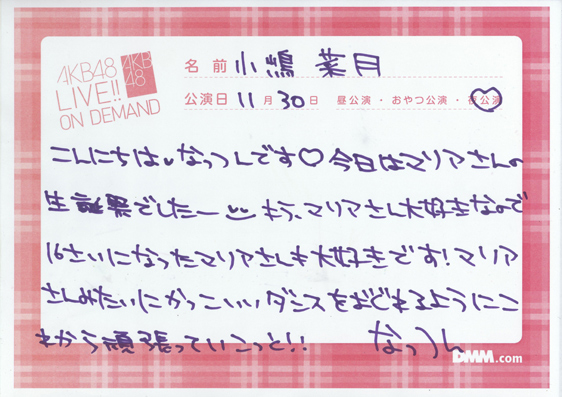 AKB48
LIVE!!
ON DEMAND
AKB
48
名前 小嶋 菜月
公演日 11月30日 昼公演・おやつ公演・夜公演
こんにちは なっつんです♡今日はマリアさんの
生誕祭でしたー もう、マリアさん大好きなので
16さいになったマリアさんも大好きです!マリア
さんみたいにかっこいいダンスをおどれるようにこ
れから頑張っていこっと!!
なっつん
DMM.com